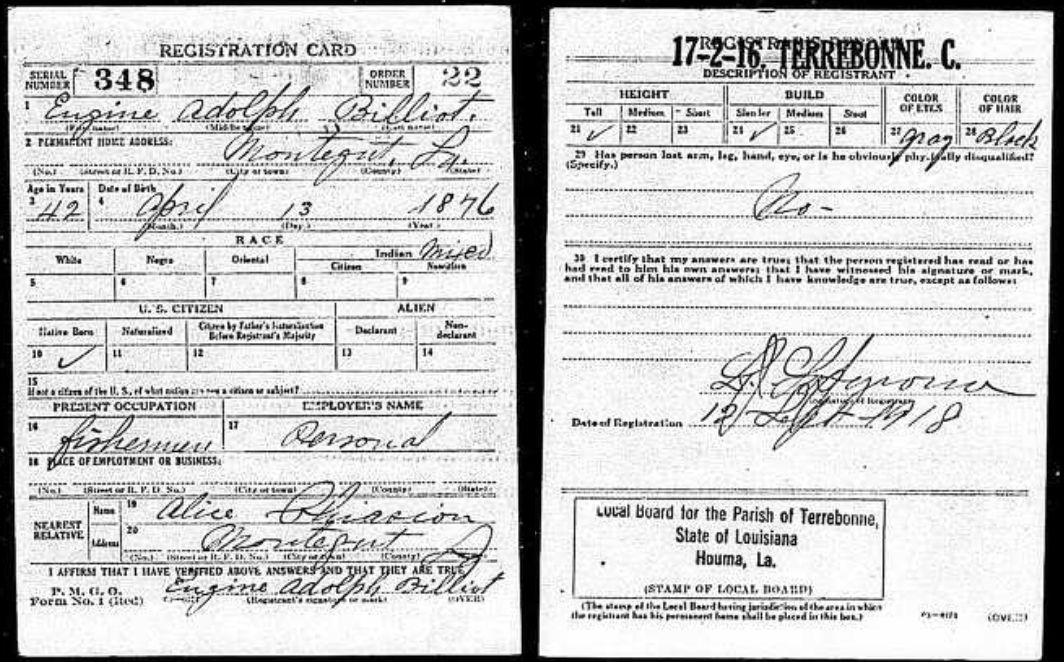 REGISTRATION CARD
SERIAL NUMBER 348 ORDER NUMBER 22
1 Engine Adolph Billiot.
(First name) (Middle name) (Last name)
2 PERMANENT HOME ADDRESS:
Montegut, La.
(No.) (Street or R. F. D. No.) (City or town) (County) (State)
Age in Years Date of Birth
3 42 4 April 13 1876
(Month.) (Day.) (Year.)
RACE
White Negro Oriental Indian Mixed
Citizen
5 6 7 8 9
U. S. CITIZEN ALIEN
Native Born Naturalized Citizen by Father's Naturalization Before Registrant's Majority Declarant Non-declarant
10 ✓ 11 12 13 14
15
If not a citizen of the U. S., of what nation are you a citizen or subject?
PRESENT OCCUPATION EMPLOYER'S NAME
16 fishermen 17 Personal
18 PLACE OF EMPLOYMENT OR BUSINESS:
(No.) (Street or R. F. D. No.) (City or town) (County) (State)
NEAREST RELATIVE Name 19 Alice Chiasion
Address 20 Montegut La
(No.) (Street or R. F. D. No.) (City or town) (County)
I AFFIRM THAT I HAVE VERIFIED ABOVE ANSWERS AND THAT THEY ARE TRUE
P. M. G. O.
Form No. 1 (Red) Engine Adolph Billiot
(Registrant's signature or mark) (OVER)
REGISTRAR'S
17-2-16. TERREBONNE. C.
DESCRIPTION OF REGISTRANT
HEIGHT BUILD COLOR OF EYES COLOR OF HAIR
Tall Medium Short Slender Medium Stout
21 ✓ 22 23 24 ✓ 25 26 27 Gray 28 Black
29 Has person lost arm, leg, hand, eye, or is he obviously physically disqualified?
(Specify.)
No-
30 I certify that my answers are true; that the person registered has read or has
had read to him his own answers; that I have witnessed his signature or mark,
and that all of his answers of which I have knowledge are true, except as follows:
Date of Registration 12 Sept-1918
Local Board for the Parish of Terrebonne,
State of Louisiana
Houma, La.
(STAMP OF LOCAL BOARD)
(The stamp of the Local Board having jurisdiction of the area in which
the registrant has his permanent home shall be placed in this box.)
(OVER)